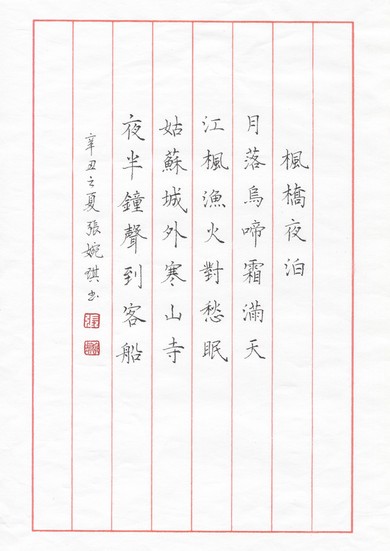 楓橋夜泊
月落烏啼霜滿天
江楓漁火對愁眠
姑蘇城外寒山寺
夜半鐘聲到客船
辛丑之夏張婉琪书